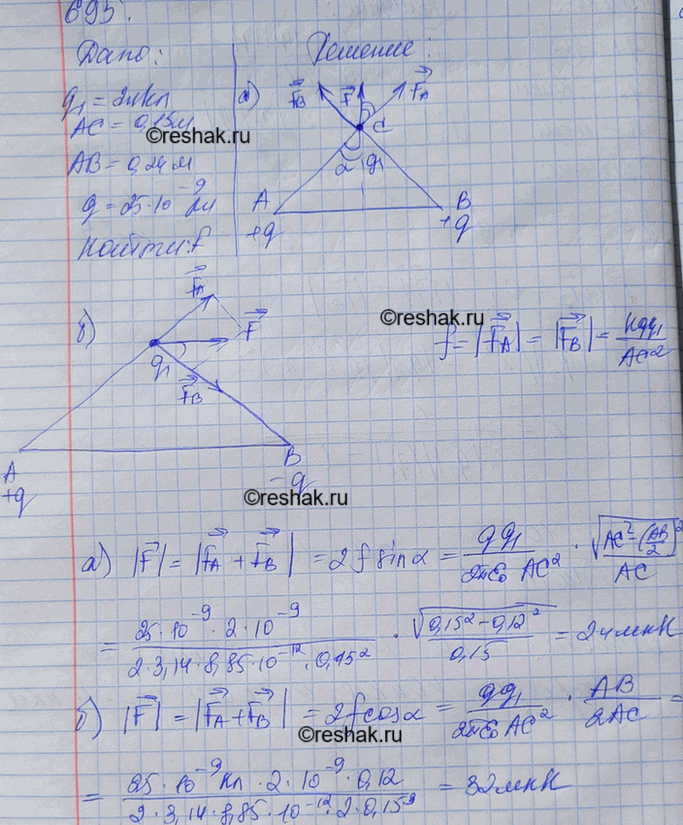 695.
Дано: Решение:
q₁ = 2нКл
AC = 0,15м
AB = 0,24 м
q = 25·10⁻⁹ Кл
Найти: F
а) F_B F F_A
C
α q₁
A B
+q +q
©reshak.ru
б) F_A
F
q₁
F_B
A B
+q -q
©reshak.ru
f = |F_A| = |F_B| = kqq₁/AC²
©reshak.ru
а) |F| = |F_A + F_B| = 2f sinα = qq₁/(2πε₀ AC²) · √(AC² - (AB/2)²)/AC
= (25·10⁻⁹ · 2·10⁻⁹)/(2·3,14·8,85·10⁻¹²·0,15²) · √(0,15² - 0,12²)/0,15 = 24мкН
б) |F| = |F_A + F_B| = 2f cosα = qq₁/(2πε₀ AC²) · AB/2AC =
©reshak.ru
= (25·10⁻⁹ Кл · 2·10⁻⁹ · 0,12)/(2·3,14·8,85·10⁻¹²·2·0,15⁻⁹) = 32мкН